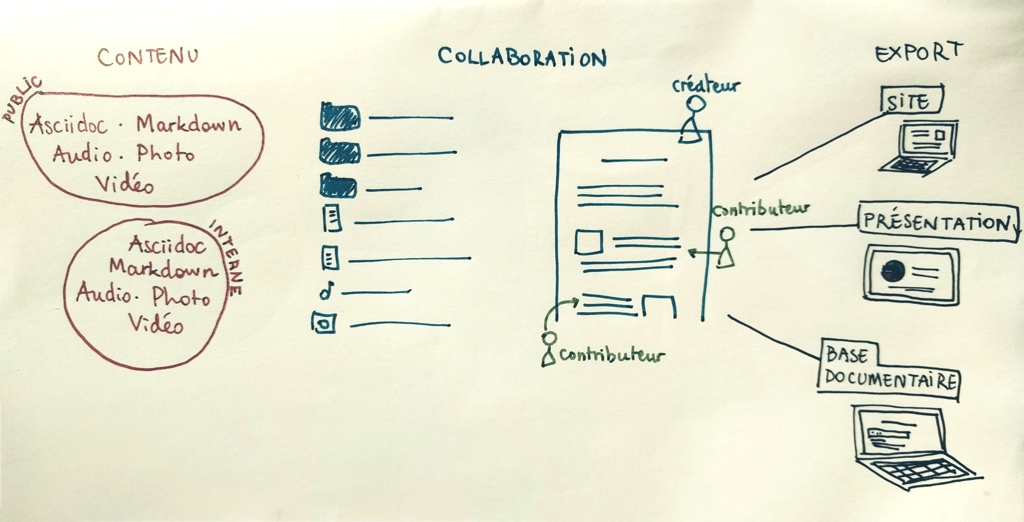 CONTENU
PUBLIC
Asciidoc · Markdown
Audio · Photo
Vidéo
INTERNE
Asciidoc
Markdown
Audio · Photo
Vidéo
COLLABORATION
créateur
contributeur
contributeur
EXPORT
SITE
PRÉSENTATION
BASE
DOCUMENTAIRE